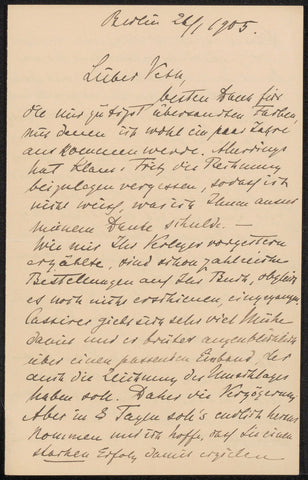 Berlin 26/1 1905.
Lieber Veth,
besten Dank für
die mir zugesandten Farben,
mit denen ich wohl ein paar Jahre
auskommen werde. Allerdings
hat Klaus Fritz die Rechnung
beizulegen vergessen, sodass ich
nicht weiss, was ich Ihnen ausser
meinem Danke schulde. —
Wie mir Ihr Verleger vorgestern
erzählte, sind schon zahlreiche
Bestellungen auf Ihr Buch, obgleich
es noch nicht erschienen, eingegangen.
Cassirer giebt sich sehr viel Mühe
damit und er brütet augenblicklich
über einen passenden Einband, der
auch die Zeichnung des Umschlages
haben soll. Daher die Verzögerung
Aber in 8 Tagen soll's endlich heraus
kommen und ich hoffe, dass Sie einen
starken Erfolg damit erzielen